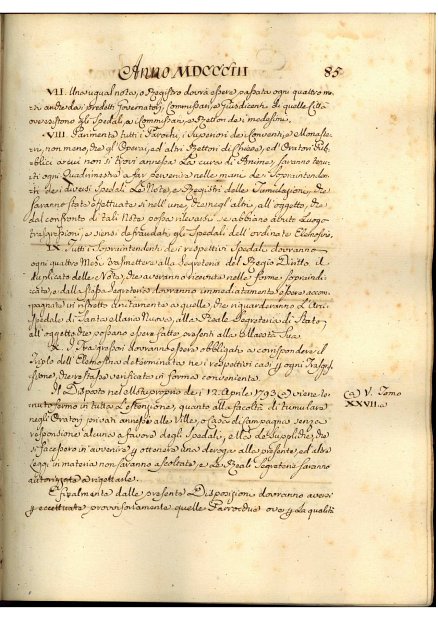 Anno MDCCCIII 85
VII. Una ugual nota, o Registro dovrà essere passata ogni quattro me-
si anche dai predetti Governatori, Commissari, e Giusdicenti di quelle Città
ove esistono gli Spedali, ai Commissari, e Rettori dei medesimi.
VIII. Parimente tutti i Parochi, i Superiori dei Conventi, e Monaste-
ri, non meno, che gl'Operai, ed altri Rettori di Chiese, ed Oratori Pub-
blici a cui non si trovi annessa la cura di Anime, saranno tenu-
ti ogni Quadrimestre a far pervenire nelle mani dei Soprintenden-
ti dei diversi Spedali le Note, e Registri delle Tumulazioni, che
saranno state effettuate sì nell'une, che negl'altri, all'oggetto, che
dal confronto di tali Note possa rilevarsi se abbiano avuto luogo
trasgressioni, e siensi defraudati gli Spedali dell'ordinate Elemosine.
IX. Tutti i Soprintendenti dei respettivi Spedali dovranno
ogni quattro Mesi trasmettere alla Segreteria del Regio Diritto il
duplicato delle Note, che averanno ricevute nelle forme soprindi-
cate, e dalla stessa Segreteria dovranno immediatamente essere accom-
pagnate in ristretto unitamente a quelle, che riguarderanno l'Arci-
spedale di Santa Maria Nuova, alla Reale Segreteria di Stato
all'oggetto che possano essere fatte presenti alla Maestà Sua.
X. I Trasgressori dovranno essere obbligati a corrispondere il
Triplo dell'Elemosina determinata nei respettivi casi p ogni Trasgres-
sione, che resterà verificata in forma conveniente.
Il Disposto nel Motuproprio dei 12. Aprile 1793 (a) viene te-
nuto fermo in tutta l'estensione, quanto alla facoltà di tumulare
negli Oratorj privati annessi alle Ville, o Case di campagna senza
responsione alcuna a favore degli Spedali, e le Suppliche, che
si facessero in avvenire p ottenere una deroga alla presente, ed altre
Leggi in materia non saranno ascoltate, e la Real Segreteria saranno
autorizzata a rigettarle.
E finalmente dalla presente Disposizione dovranno aversi
p eccettuate provvisoriamente quelle Parrocchie ove p la qualità
(a) V. Tomo
XXVII. a